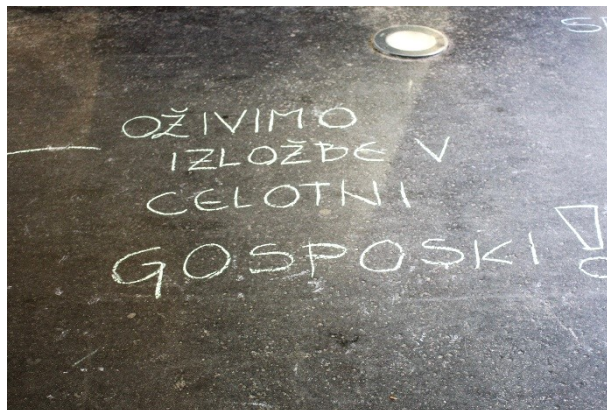 OŽIVIMO
IZLOŽBE V
CELOTNI
GOSPOSKI!